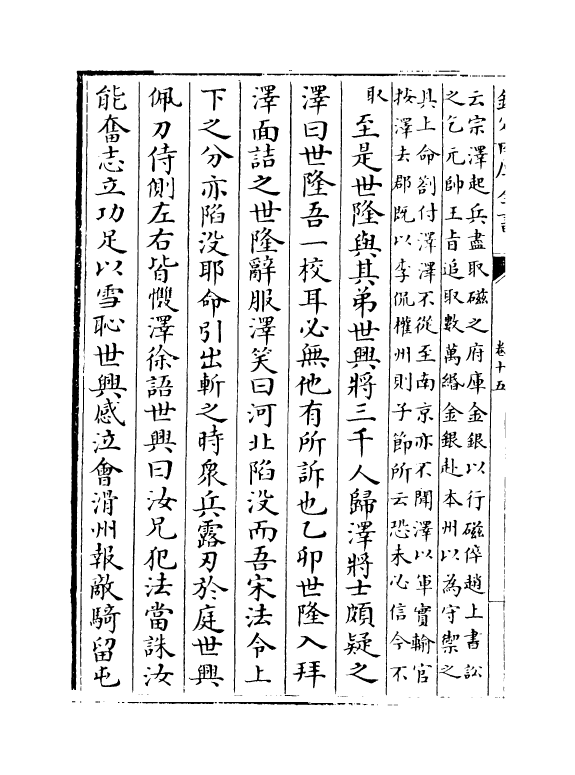 卷十五
云宗澤起兵盡取磁之府庫金銀以行磁倅趙上書訟
之乞元帥王旨追取數萬緡金銀赴本州以為守禦之
具上命劄付澤澤不從至南京亦不聞澤以軍實輸官
按澤去郡既以李侃權州則子節所云恐未必信今不
取
至是世隆與其弟世興將三千人歸澤將士頗疑之
澤曰世隆吾一校耳必無他有所訴也乙卯世隆入拜
澤面詰之世隆辭服澤笑曰河北陷没而吾宋法令上
下之分亦陷没耶命引出斬之時衆兵露刃於庭世興
佩刀侍側左右皆懼澤徐語世興曰汝兄犯法當誅汝
能奮志立功足以雪恥世興感泣會滑州報敵騎留屯